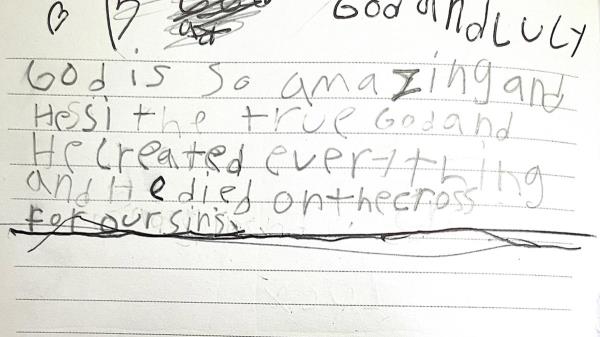 God and LULY
God is so amazing and
Hessi the true God and
He created everything
and He died on the cross
for our sins.